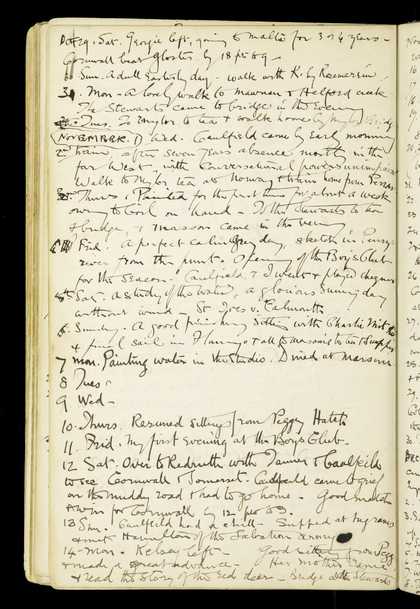 Oct 29. Sat. Georgie left, going to Malta for 3 or 4 years -
Cornwall beat Gloster by 18 pts 89 -
Sun. A dull Easterly day - walk with K. by
31. Mon - A lovely walk to Mawnan & Helford creek
The Stewarts came to bridge in the Evening
Tues. To Mylor to tea & walk home by Mylor Bridge
NOVEMBER. 1 Wed. Caulfield came by Early morning
2nd train after seven years absence in the
far West - with conversational powers unimpaired
Walk to Mylor tea at & train home from
3rd Thurs. Painted for the first time for about a week
owing to Cool on hand - To the Stewarts to tea
& bridge, & Marsons came in the
Fri. A perfect calm Grey day, sketch in
river from the punt. Opening of the Boys Club
for the season. Caulfield & I went & played
5th Sat. A study of the water, a glorious sunny day
without wind - St Ives v. Falmouth
6. Sunday. A good Sitting with Charlie
& sail in & all to Marsons to tea & supper
7 Mon. Painting water in the studio. Dined at Marsons
8 Tues.
9 Wed -
10 Thurs. Resumed sittings from Peggy
11. Frid. My first evening at the Boys Club.
12 Sat. Over to Redruth with Tanner & Caulfeild
to see Cornwall & Somerset. Caulfeild came to grief
on the muddy road & had to go home - Good match
& win for Cornwall by 12 pts
13 Sun. Caulfield had a chill - Supped at Ingrams
& met Hamilton of the Salvation Army
14 - Mon. Kelsey left - Good sitting from Pegg
& made a great advance - Her mother came
& read the Story of the Red deer - Bridge with Stewarts